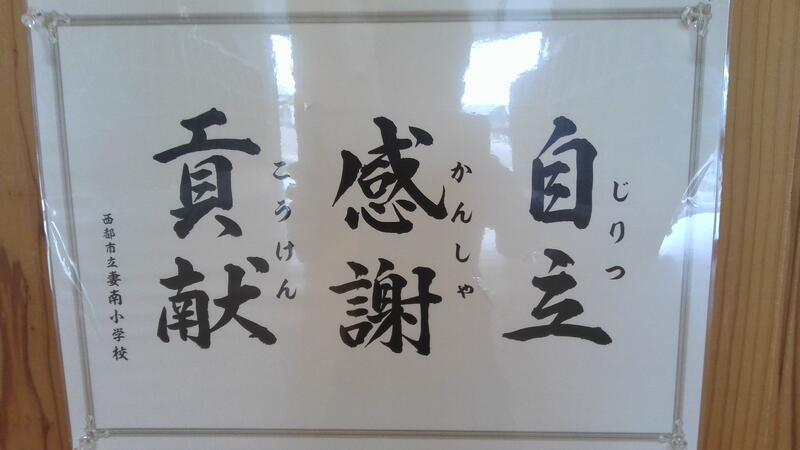 自立
じりつ
感謝
かんしゃ
貢献
こうけん
西都市立妻南小学校